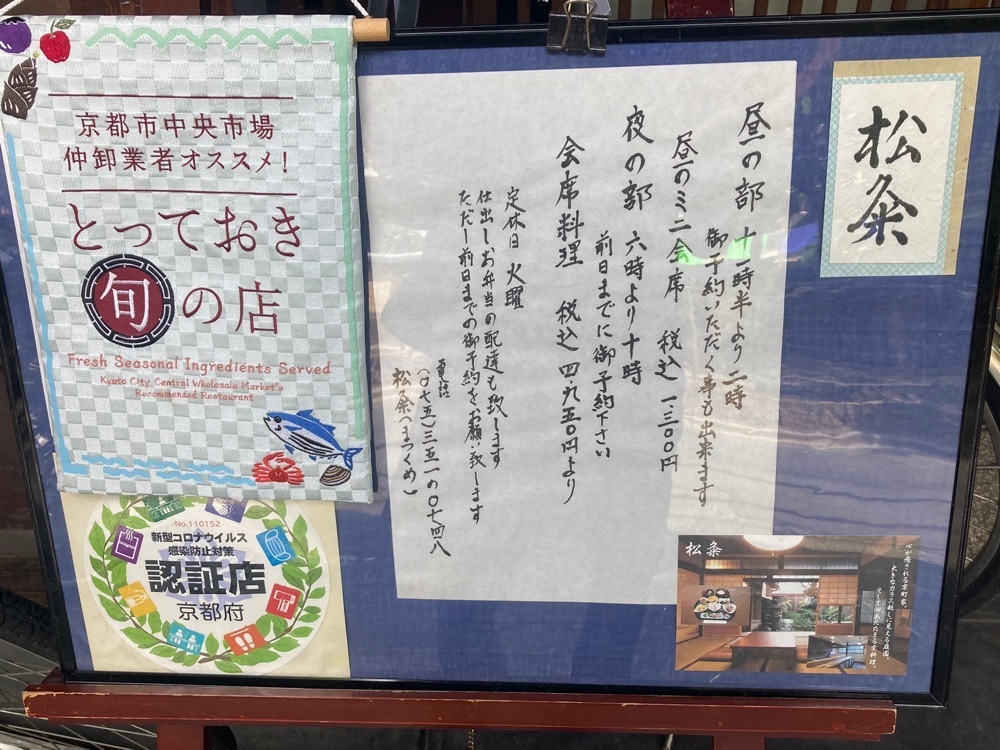 京都市中央市場
仲卸業者オススメ!
とっておき
旬の店
Fresh Seasonal Ingredients Served
Kyoto City Central Wholesale Market's
Recommended Restaurant
No.110152
新型コロナウイルス
感染防止対策
認証店
京都府
松粂
昼の部 十一時半より二時
御予約いただく事も出来ます
昼のミニ会席 税込 一三〇〇円
夜の部 六時より十時
前日までに御予約下さい
会席料理 税込四九五〇円より
定休日 火曜
仕出しお弁当の配達も致します
ただし前日までの御予約をお願い致します
電話
(〇七五)三五一一〇七四八
松粂(まつくめ)
松粂
心が癒される京町家。
大きなガラス越しに見える庭園。
そして心あたたまる京料理。